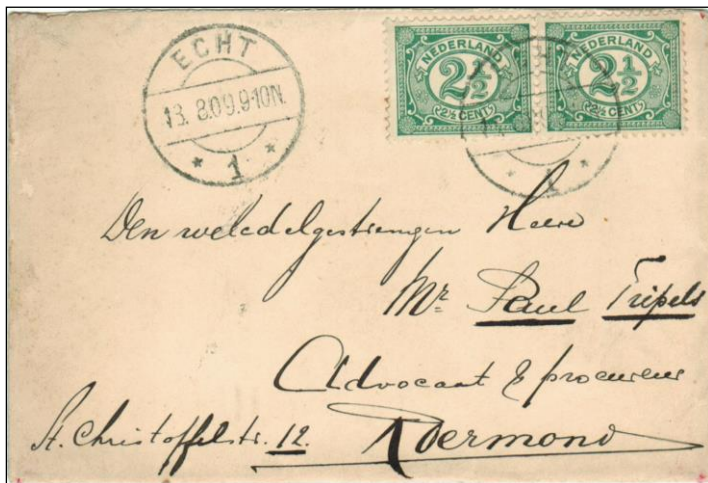 ECHT
13. 8.09.9-10N.
* 1 *
NEDERLAND
2½
2½ CENT
NEDERLAND
2½
2½ CENT
Den weledelgestrengen Heere
Mr. Paul Tripels
Advocaat & procureur
St. Christoffelstr. 12.
Roermond